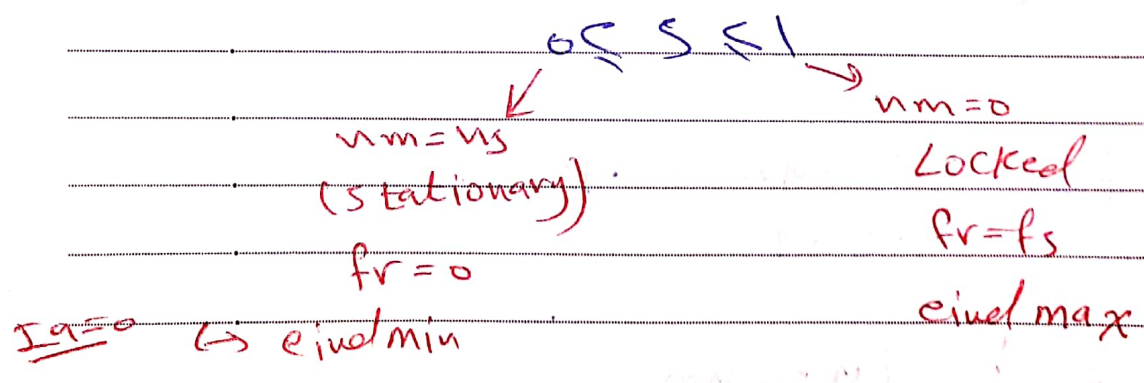 0 ≤ S ≤ 1
nm = ns
(stationary)
fr = 0
Ia = 0 ↳ eind min
nm = 0
Locked
fr = fs
eind max